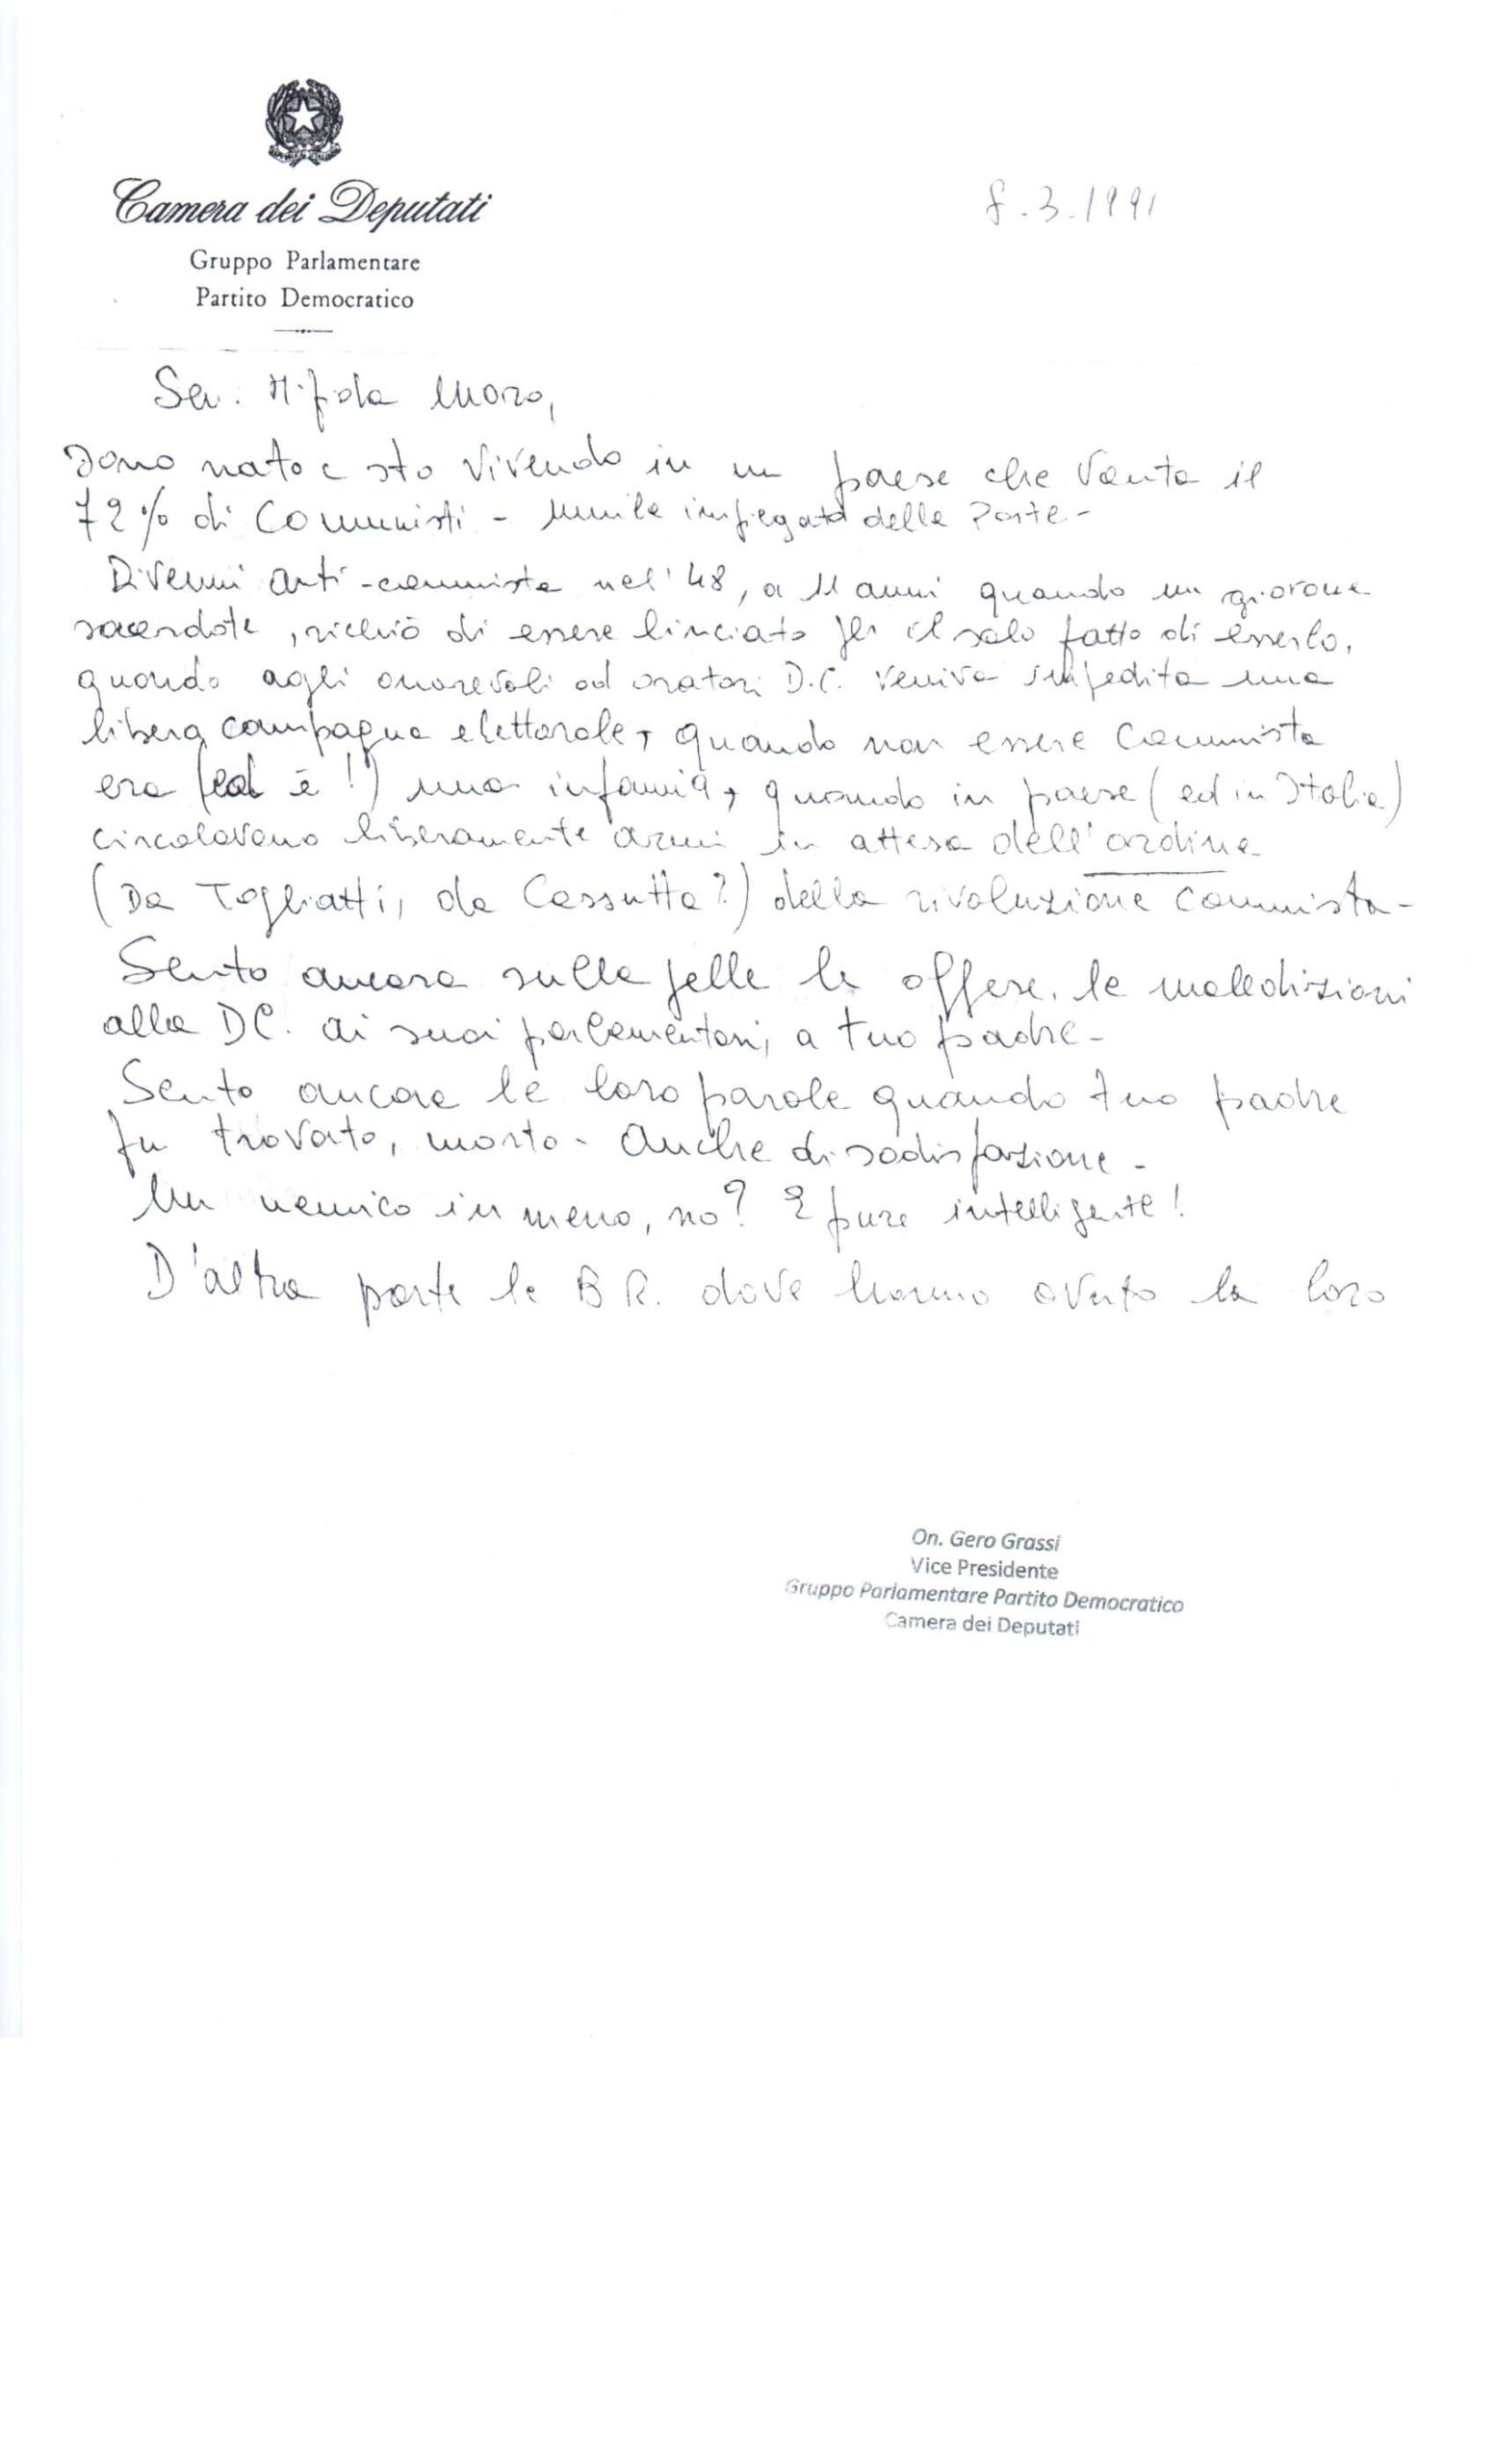 Camera dei Deputati
Gruppo Parlamentare
Partito Democratico
8.3.1991
Sen. Mi fida Moro,
Sono nato e sto vivendo in un paese che vanta il
72% di Comunisti - umile impiegato delle Poste -
Divenni anti-comunista nel '48, a 11 anni quando un giovane
sacerdote, rischiò di essere linciato per il solo fatto di esserlo,
quando agli onorevoli od oratori D.C. veniva impedita una
libera campagna elettorale, quando non essere Comunista
era (ed è!) una infamia, quando in paese (ed in Italia)
circolavano liberamente armi in attesa dell'ordine
(Da Togliatti, da Cossutta?) della rivoluzione comunista -
Sento ancora sulla pelle le offese, le maledizioni
alla DC. ai suoi parlamentari, a tuo padre -
Sento ancora le loro parole quando tuo padre
fu trovato, morto - Anche di sodisfazione -
Un nemico in meno, no? E pure intelligente!
D'altra parte le B R. dove hanno avuto la loro
On. Gero Grassi
Vice Presidente
Gruppo Parlamentare Partito Democratico
Camera dei Deputati